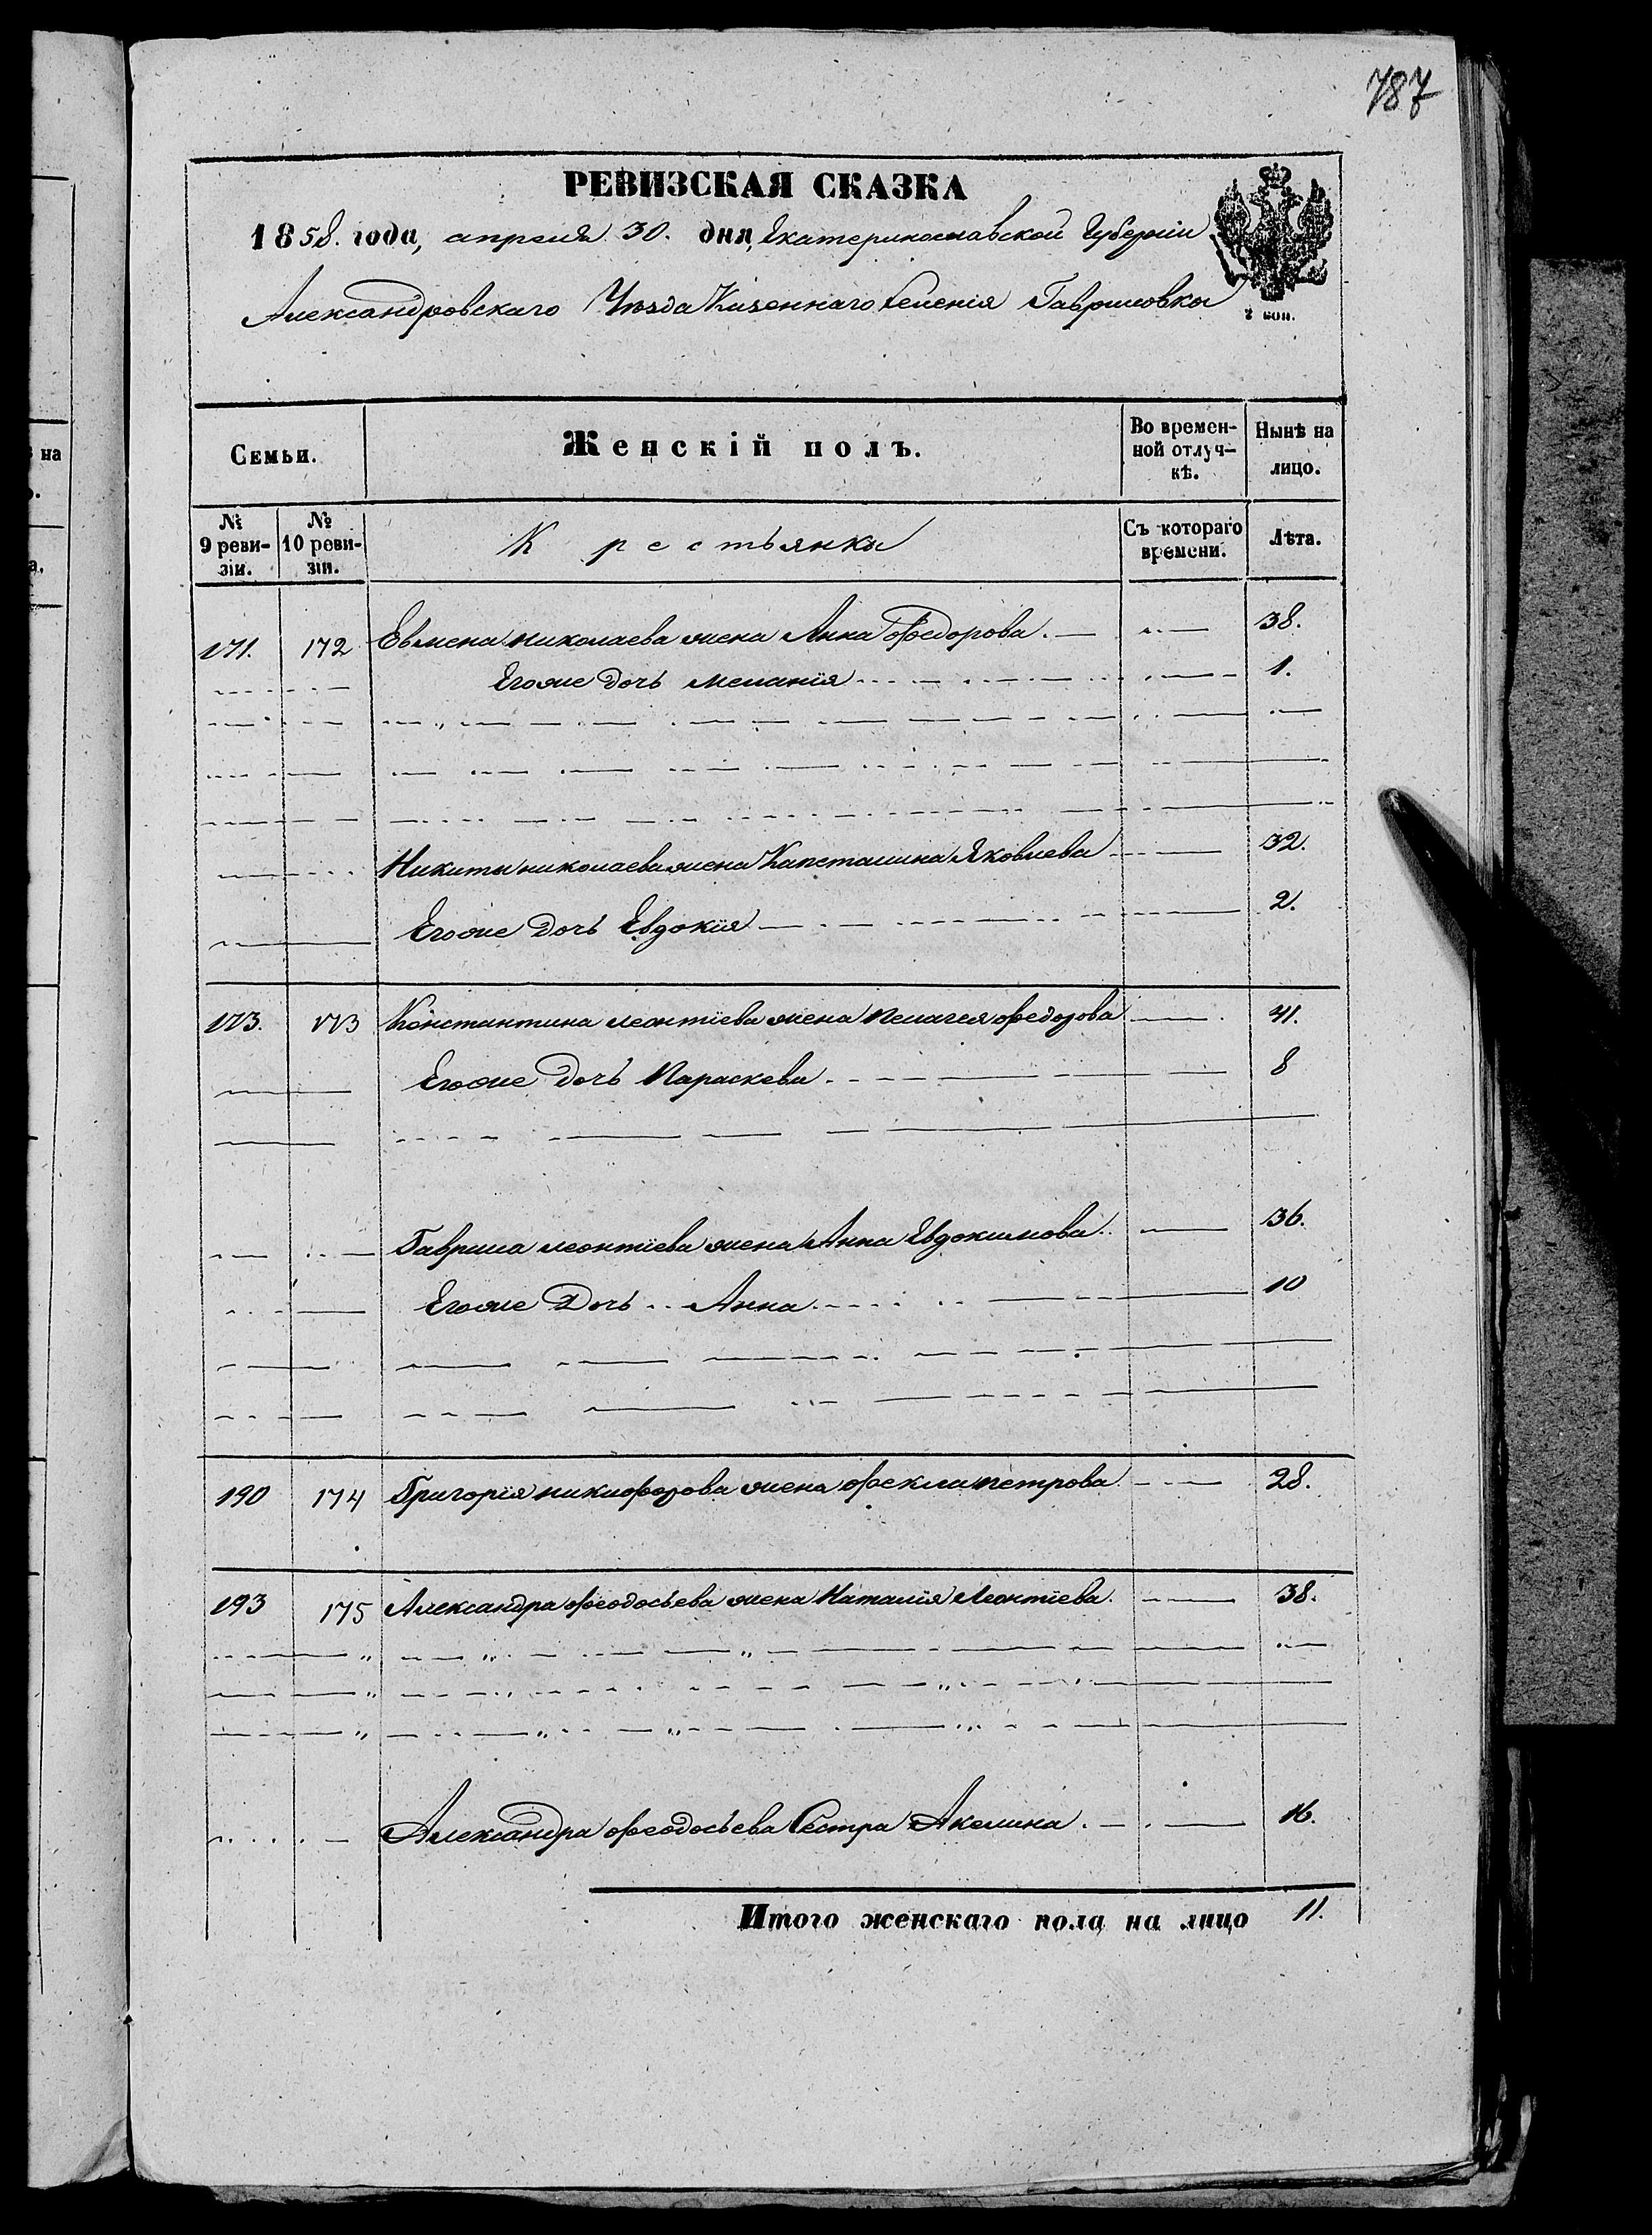 787
РЕВИЗСКАЯ СКАЗКА
1858. года, апреля 30. дня, Екатеринославской Губерніи
Александровскаго Уѣзда Казеннаго Селенія Гавриловки
7 коп.
на
Семьи. Женскій полъ. Во времен- Нынѣ на
ной отлуч- лицо.
кѣ.
№ № Крестьянки Съ котораго Лѣта.
9 реви- 10 реви- времени.
зіи. зіи.
171. 172 Евмена николаева жена Анна Федорова. 38.
Егоже дочь меланія 1.
Никиты николаева жена Капеталина Яковлева 32.
Егоже дочь Евдокія 2.
173. 173 Константина леонтіева жена Пелагея федорова 41.
Егоже дочь Параскева 8
Гаврила леонтіева жена Анна Евдокимова 36.
Егоже Дочь Анна 10
190 174 Григорія никифорова жена фекла петрова 28.
193 175 Александра феодосьева жена Наталія Леонтіева 38.
Александра феодосьева Сестра Акелина 16.
Итого женскаго пола на лицо 11.